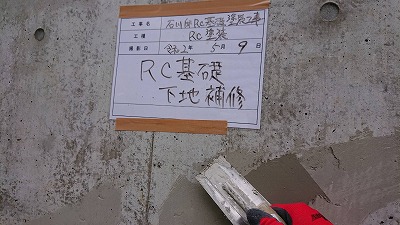 工事名 石川邸RC基礎塗装工事
工種 RC塗装
撮影日 令和2年 5月 9日
RC基礎
下地補修